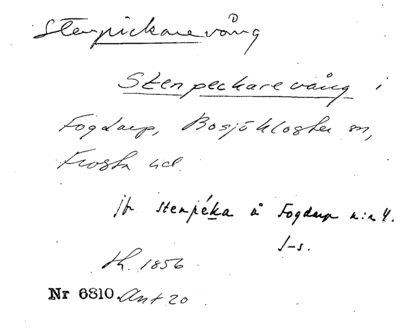 Stenpickarevång
Stenpeckarevång i
Fogdarp, Bosjökloster sn,
Frosta hd.
jfr stenpéka å Fogdarp n:r 4.
J-s.
th. 1856
Nr 6810 Ant 20